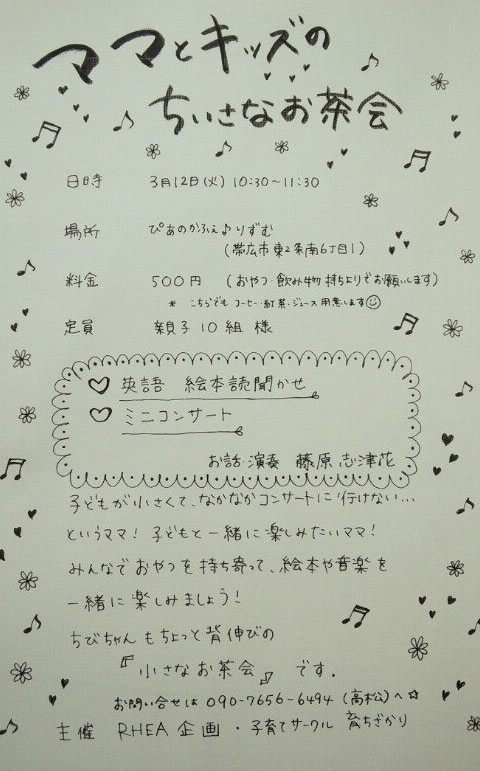 ママとキッズの
ちいさなお茶会
日時 3月12日(火) 10:30~11:30
場所 ぴあのかふぇ♪りずむ
(帯広市東2条南6丁目1)
料金 500円 (おやつ・飲み物持ちよりでお願いします)
* こちらでも コーヒー・紅茶・ジュース 用意します☺
定員 親子10組様
♡ 英語 絵本読聞かせ
♡ ミニコンサート
お話・演奏 藤原志津花
子どもが小さくて、なかなかコンサートに行けない…
というママ!子どもと一緒に楽しみたいママ!
みんなでおやつを持ち寄って、絵本や音楽を
一緒に楽しみましょう!
ちびちゃんもちょっと背伸びの
『小さなお茶会』です.
お問い合せは 090-7656-6494 (高松)へ☆
主催 RHEA企画・子育てサークル 育ちざかり